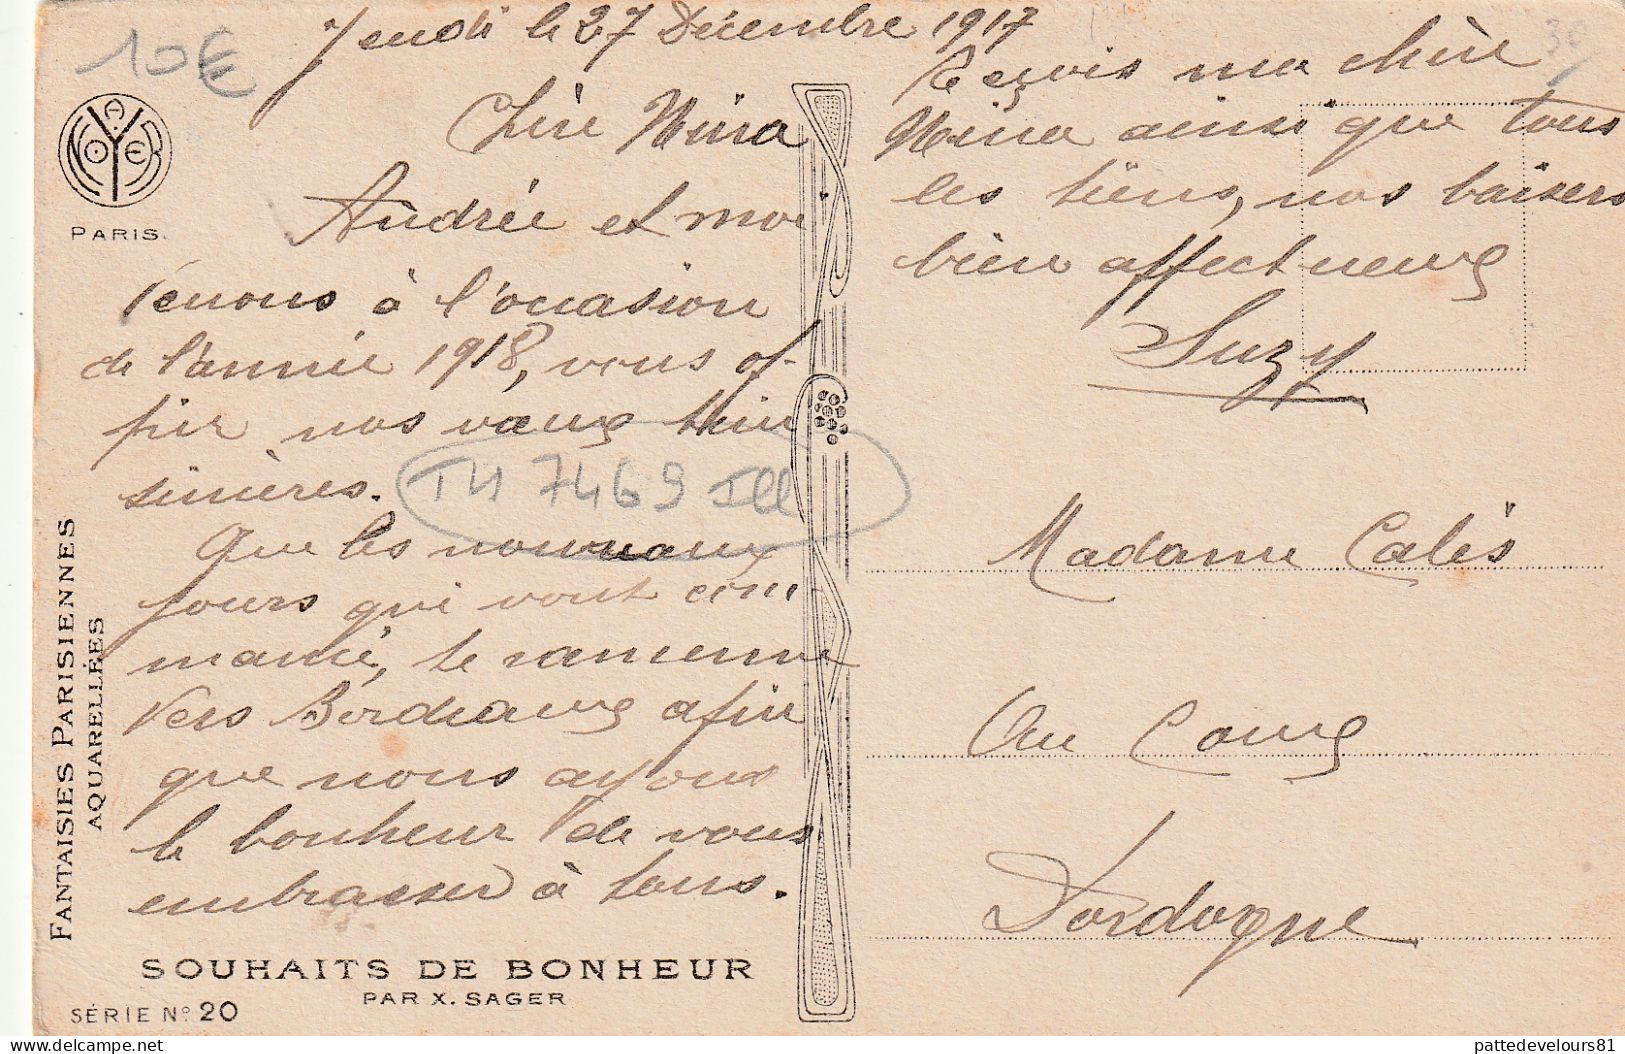 10€
Jeudi le 27 Décembre 1917
Chère Nina
Andrée et moi
venons à l'occasion
de l'année 1918, vous of-
frir nos vœux bien
sincères.
TH 7469 Ill
Que les nouveaux
jours qui vont com
mancé, te ramenne
vers Bordeaux afin
que nous ayons
le bonheur de vous
embrasser à tous.
Reçois ma chère
Nina ainsi que tous
les tiens, nos baisers
bien affectueux
Suzy
Madame Calès
Au Coux
Dordogne
NOYER
PARIS
FANTAISIES PARISIENNES
AQUARELLÉES
SOUHAITS DE BONHEUR
PAR X. SAGER
SÉRIE Nº 20
delcampe.net
pattedevelours81